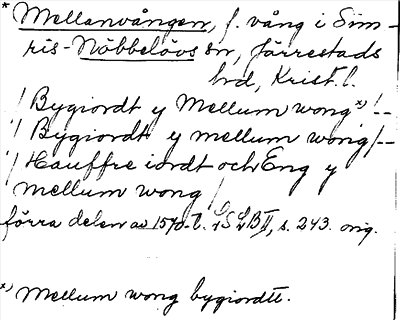 * Mellanvången, f. vång i Sim-
ris-Nöbbelövs sn, Järrestads
hrd, Krist. l.
/ Bygiordt y Mellum wong x) /--
/ Bygiordt y mellum wong /--
/ Hauffre iordt och Eng y
mellum wong /
förra delen av 1570-t. LSLB II, s. 243. orig.
x) Mellum wong bygiordtt.